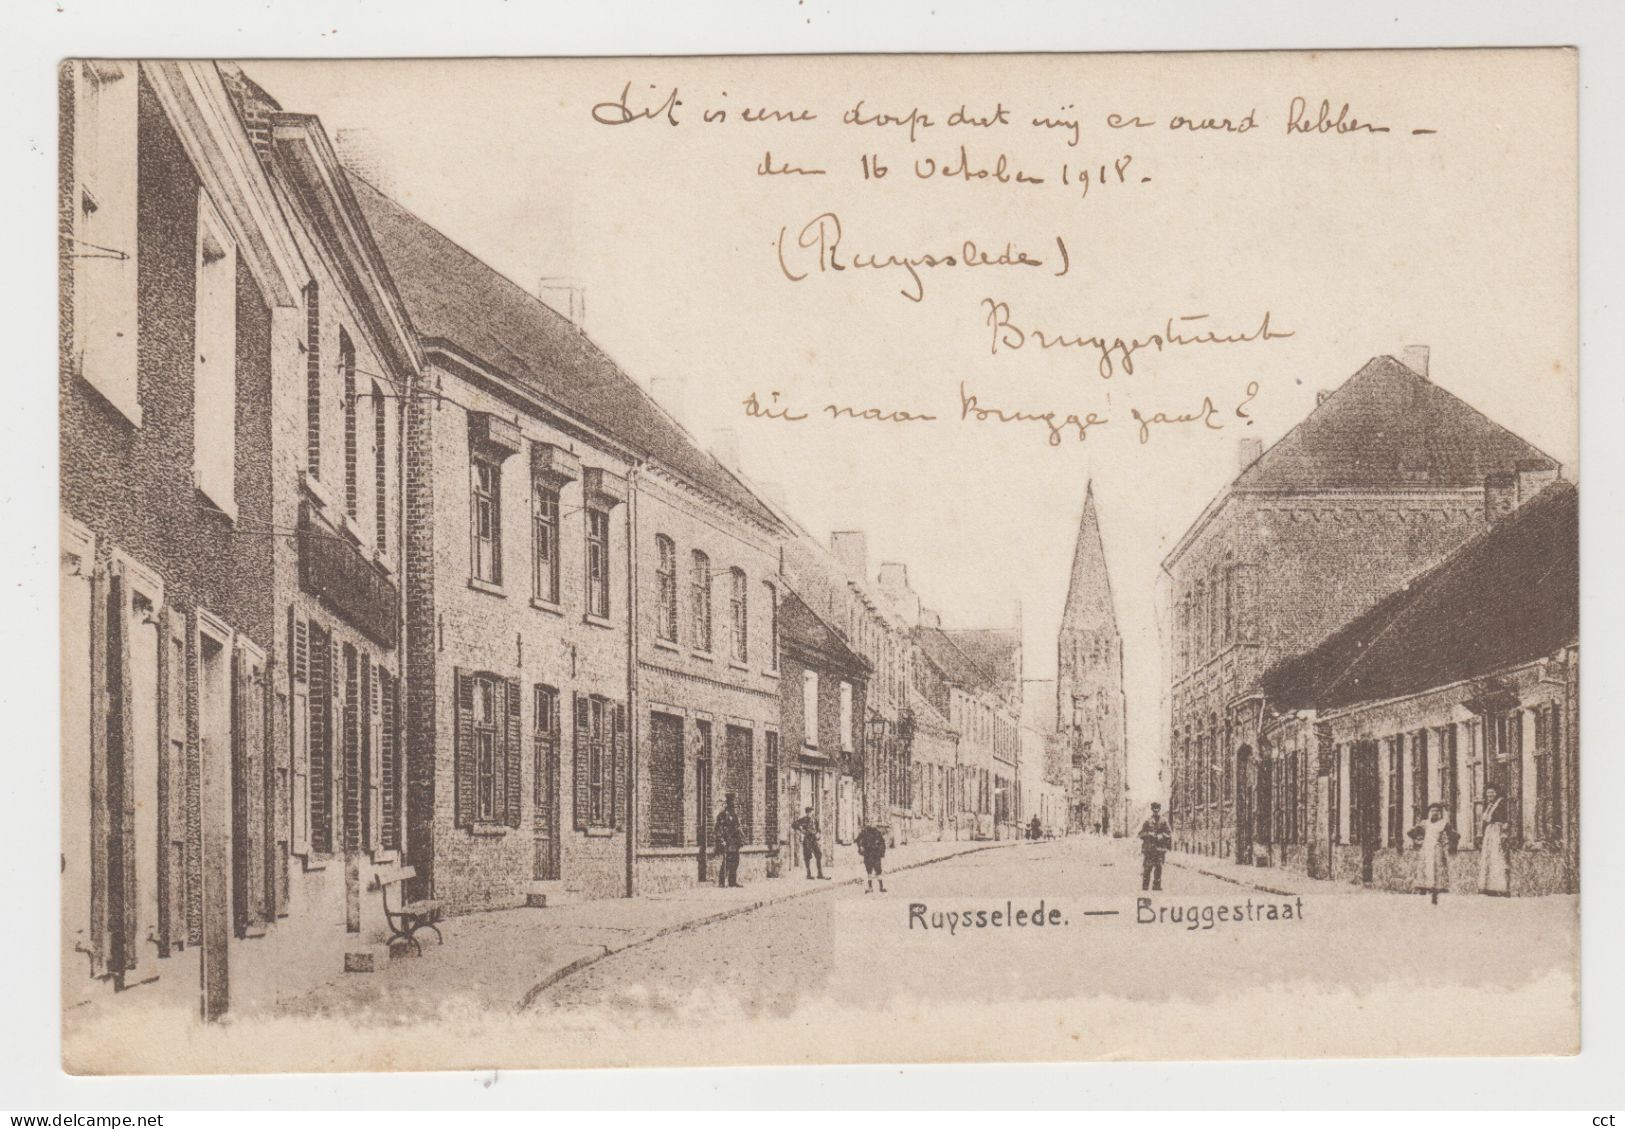 Dit is eene dorp dat wij er overd hebben -
den 16 October 1918.
(Ruysslede)
Bruggestraat
die naar Brugge gaat ?
Ruysselede. — Bruggestraat
www.delcampe.net
cct